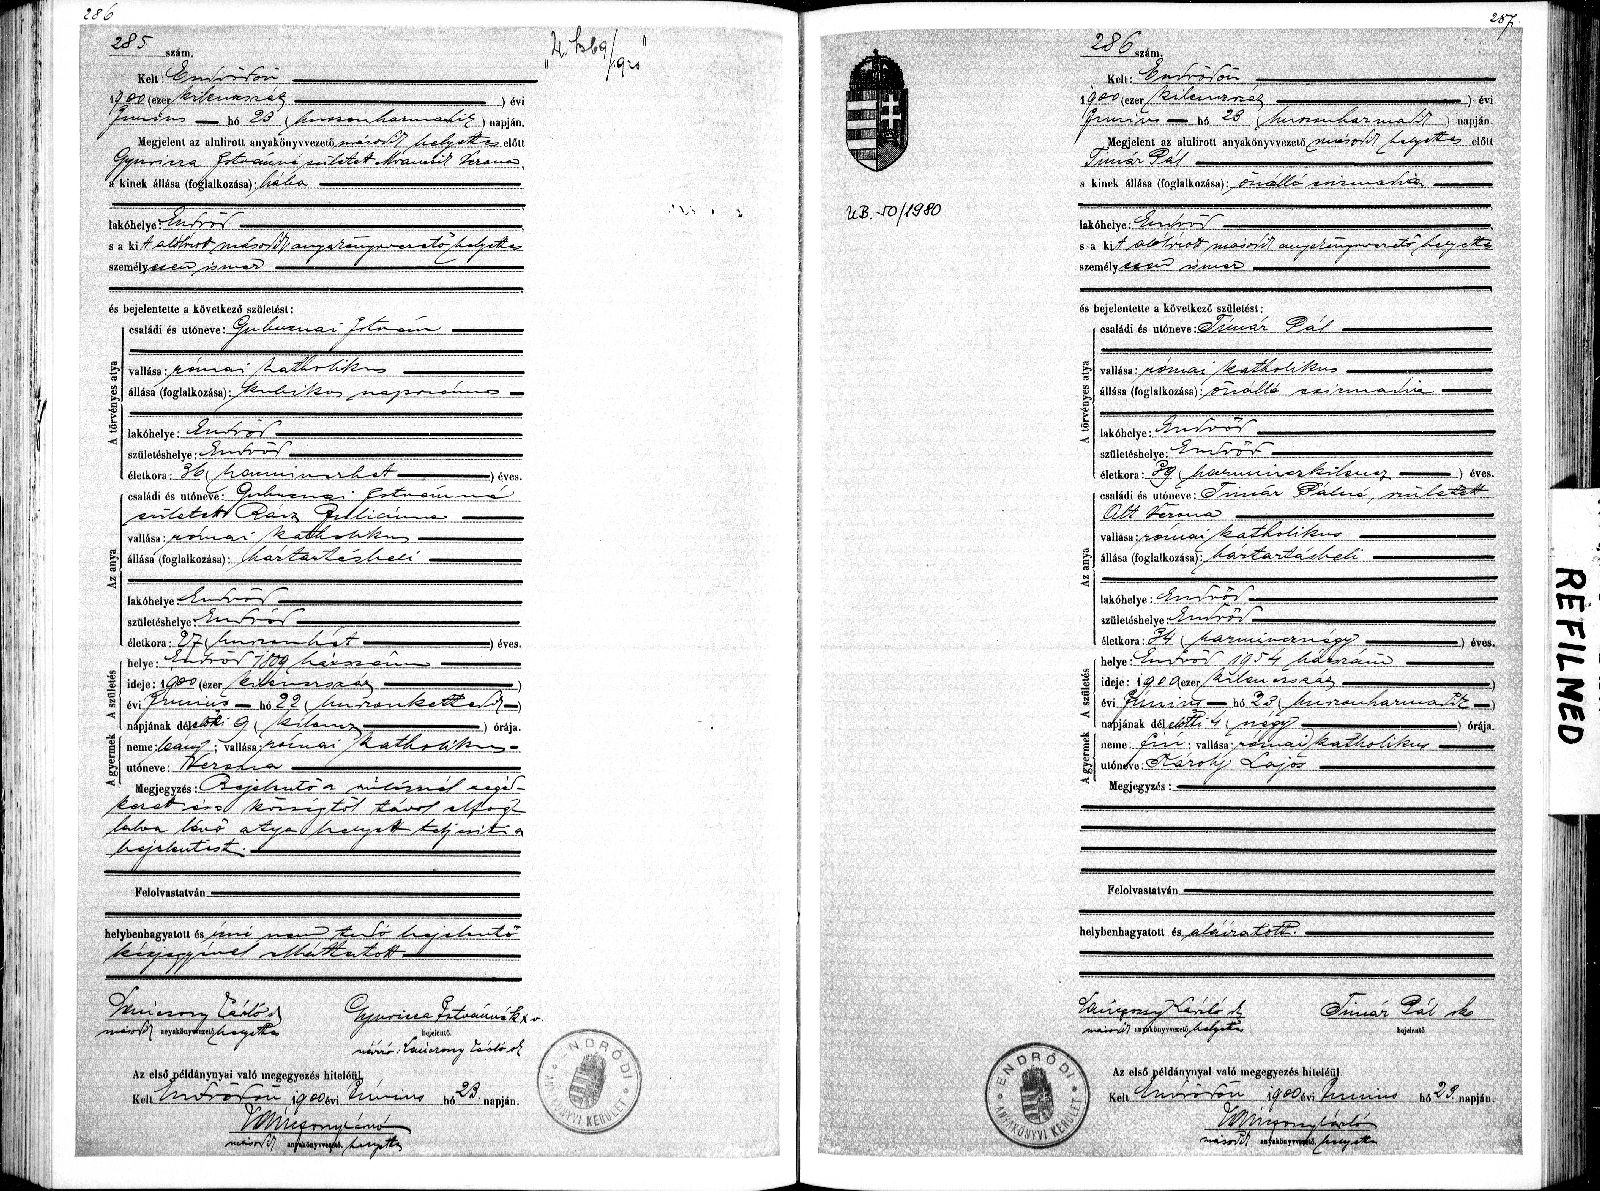 286
285 szám.
Kelt: Endrődön
1900 (ezer kilenczszáz ) évi
Junius hó 23 ( huszonharmadik ) napján.
Megjelent az alulirott anyakönyvvezető másod helyettes előtt
Gyuricza Istvánné született Verona
a kinek állása (foglalkozása): bába
lakóhelye: Endrőd
s a kit alólirott másod anyakönyvvezető helyettes
személyesen ismer
és bejelentette a következő születést:
A törvényes atya
családi és utóneve: Gubucznai István
vallása: római katholikus
állása (foglalkozása): kubikos napszámos
lakóhelye: Endrőd
születéshelye: Endrőd
életkora: 36 ( harminczhat ) éves.
Az anya
családi és utóneve: Gubucznai Istvánné
született Rácz Felicziána
vallása: római katholikus
állása (foglalkozása): háztartásbeli
lakóhelye: Endrőd
születéshelye: Endrőd
életkora: 27 ( huszonhét ) éves.
A születés
helye: Endrőd 1809 házszám
ideje: 1900 (ezer kilenczszáz )
évi Junius hó 22 ( huszonkettedik )
napjának délelőtti 9 ( kilencz ) órája.
A gyermek
neme: leány; vallása: római katholikus
utóneve: Verona
Megjegyzés: Bejelentő a szülésnél segéd-
kezett és a községtől távol elfog-
lalva lévő atya helyett teljesíti a
bejelentést.
Felolvastatván
helybenhagyatott és irni nem tudó bejelentő
kézjegyével elláttatott
László
Gyuricza Istvánné
másod anyakönyvvezető helyettes
bejelentő.
László
Az első példánynyal való megegyezés hiteléül.
Kelt Endrődön 1900 évi Junius hó 23 napján.
másod anyakönyvvezető helyettes
ENDRŐDI
ANYAKÖNYVI KERÜLET
UB.-50/1980
257
286 szám.
Kelt: Endrődön
1900 (ezer kilenczszáz ) évi
Junius hó 23 ( huszonharmadik ) napján.
Megjelent az alulirott anyakönyvvezető másod helyettes előtt
Timár Pál
a kinek állása (foglalkozása): önálló csizmadia
lakóhelye: Endrőd
s a kit alólirott másod anyakönyvvezető helyettes
személyesen ismer
és bejelentette a következő születést:
A törvényes atya
családi és utóneve: Timár Pál
vallása: római katholikus
állása (foglalkozása): önálló csizmadia
lakóhelye: Endrőd
születéshelye: Endrőd
életkora: 39 ( harminczkilencz ) éves.
Az anya
családi és utóneve: Timár Pálné, született
Alt Verona
vallása: római katholikus
állása (foglalkozása): háztartásbeli
lakóhelye: Endrőd
születéshelye: Endrőd
életkora: 34 ( harmincznégy ) éves.
A születés
helye: Endrőd 1954 házszám
ideje: 1900 (ezer kilenczszáz )
évi Junius hó 23 ( huszonharmadik )
napjának délelőtti 4 ( négy ) órája.
A gyermek
neme: fiú; vallása: római katholikus
utóneve: Károly Lajos
Megjegyzés:
Felolvastatván
helybenhagyatott és aláiratott.
László
Timár Pál
másod anyakönyvvezető helyettes
bejelentő
Az első példánynyal való megegyezés hiteléül.
Kelt Endrődön 1900 évi Junius hó 23 napján.
másod anyakönyvvezető helyettes
ENDRŐDI
ANYAKÖNYVI KERÜLET
REFILMED